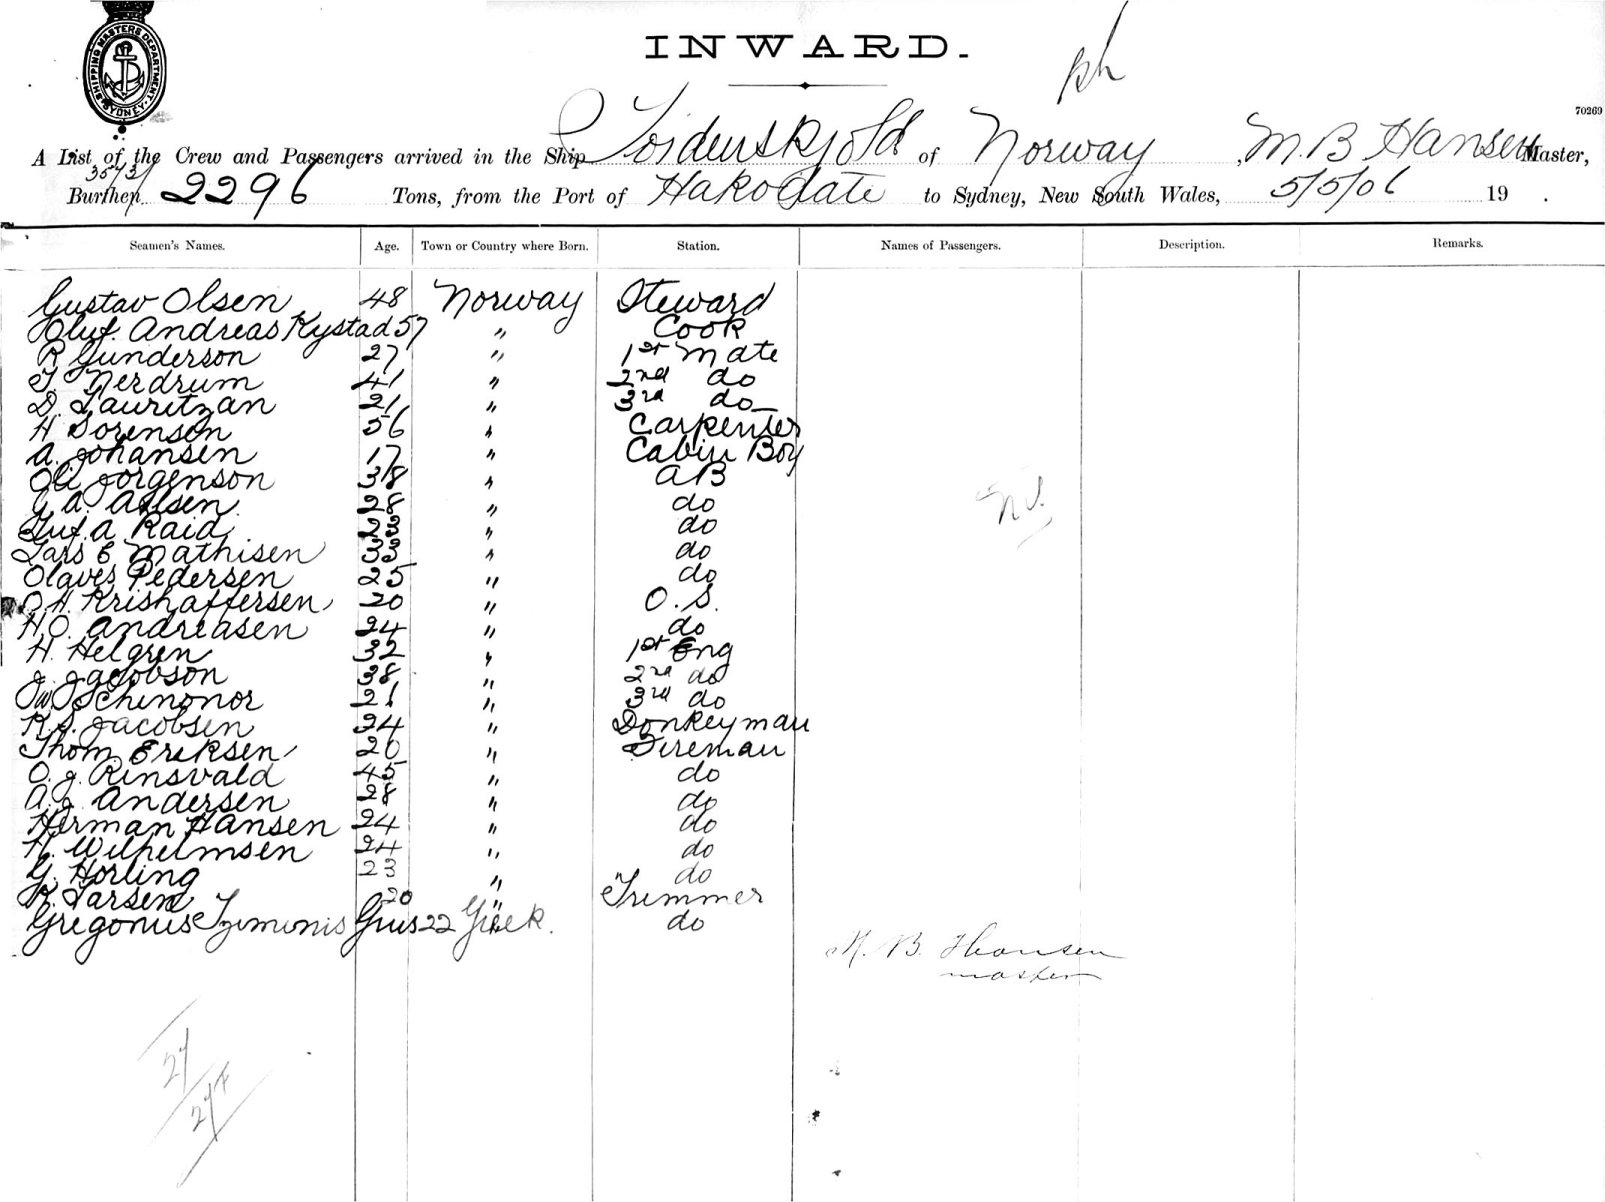 SHIPPING MASTERS DEPARTMENT. SYDNEY.
INWARD.
70269
A List of the Crew and Passengers arrived in the Ship of Norway, M. B Hansen Master,
Burthen 2296 Tons, from the Port of Hakodate to Sydney, New South Wales, 5/5/06 19 .
Seamen's Names. Age. Town or Country where Born. Station. Names of Passengers. Description. Remarks.
Gustav Olsen 48 Norway Steward
Oluf. Andreas Kystad 57 " Cook
R Gunderson 27 " 1st Mate
T. Nerdrum 41 " 2nd do
D. Lauritzan 21 " 3rd do
H Sorenson 56 " Carpenter
A. Johansen 17 " Cabin Boy
Ole Jorgenson 38 " AB
A. 28 " do
A Raid 23 " do
Lars E Mathisen 33 " do
Olaves Pedersen 25 " do
O.H. Krishaffersen 20 " O.S.
H.O. Andreasen 24 " do
H. Helgren 32 " 1st Eng
J. Jacobson 38 " 2nd do
Schinonor 21 " 3rd do
R.S. Jacobsen 24 " Donkeyman
Thom. Eriksen 20 " Fireman
O.J. Rinsvald 45 " do
A.J. Andersen 28 " do
Herman Hansen 24 " do
H. Wilhelmsen 24 " do
G. Horling 23 " do
R. Larsen 20 " Trimmer
Gregorius 22 Greek. do
M. B. Hansen
master